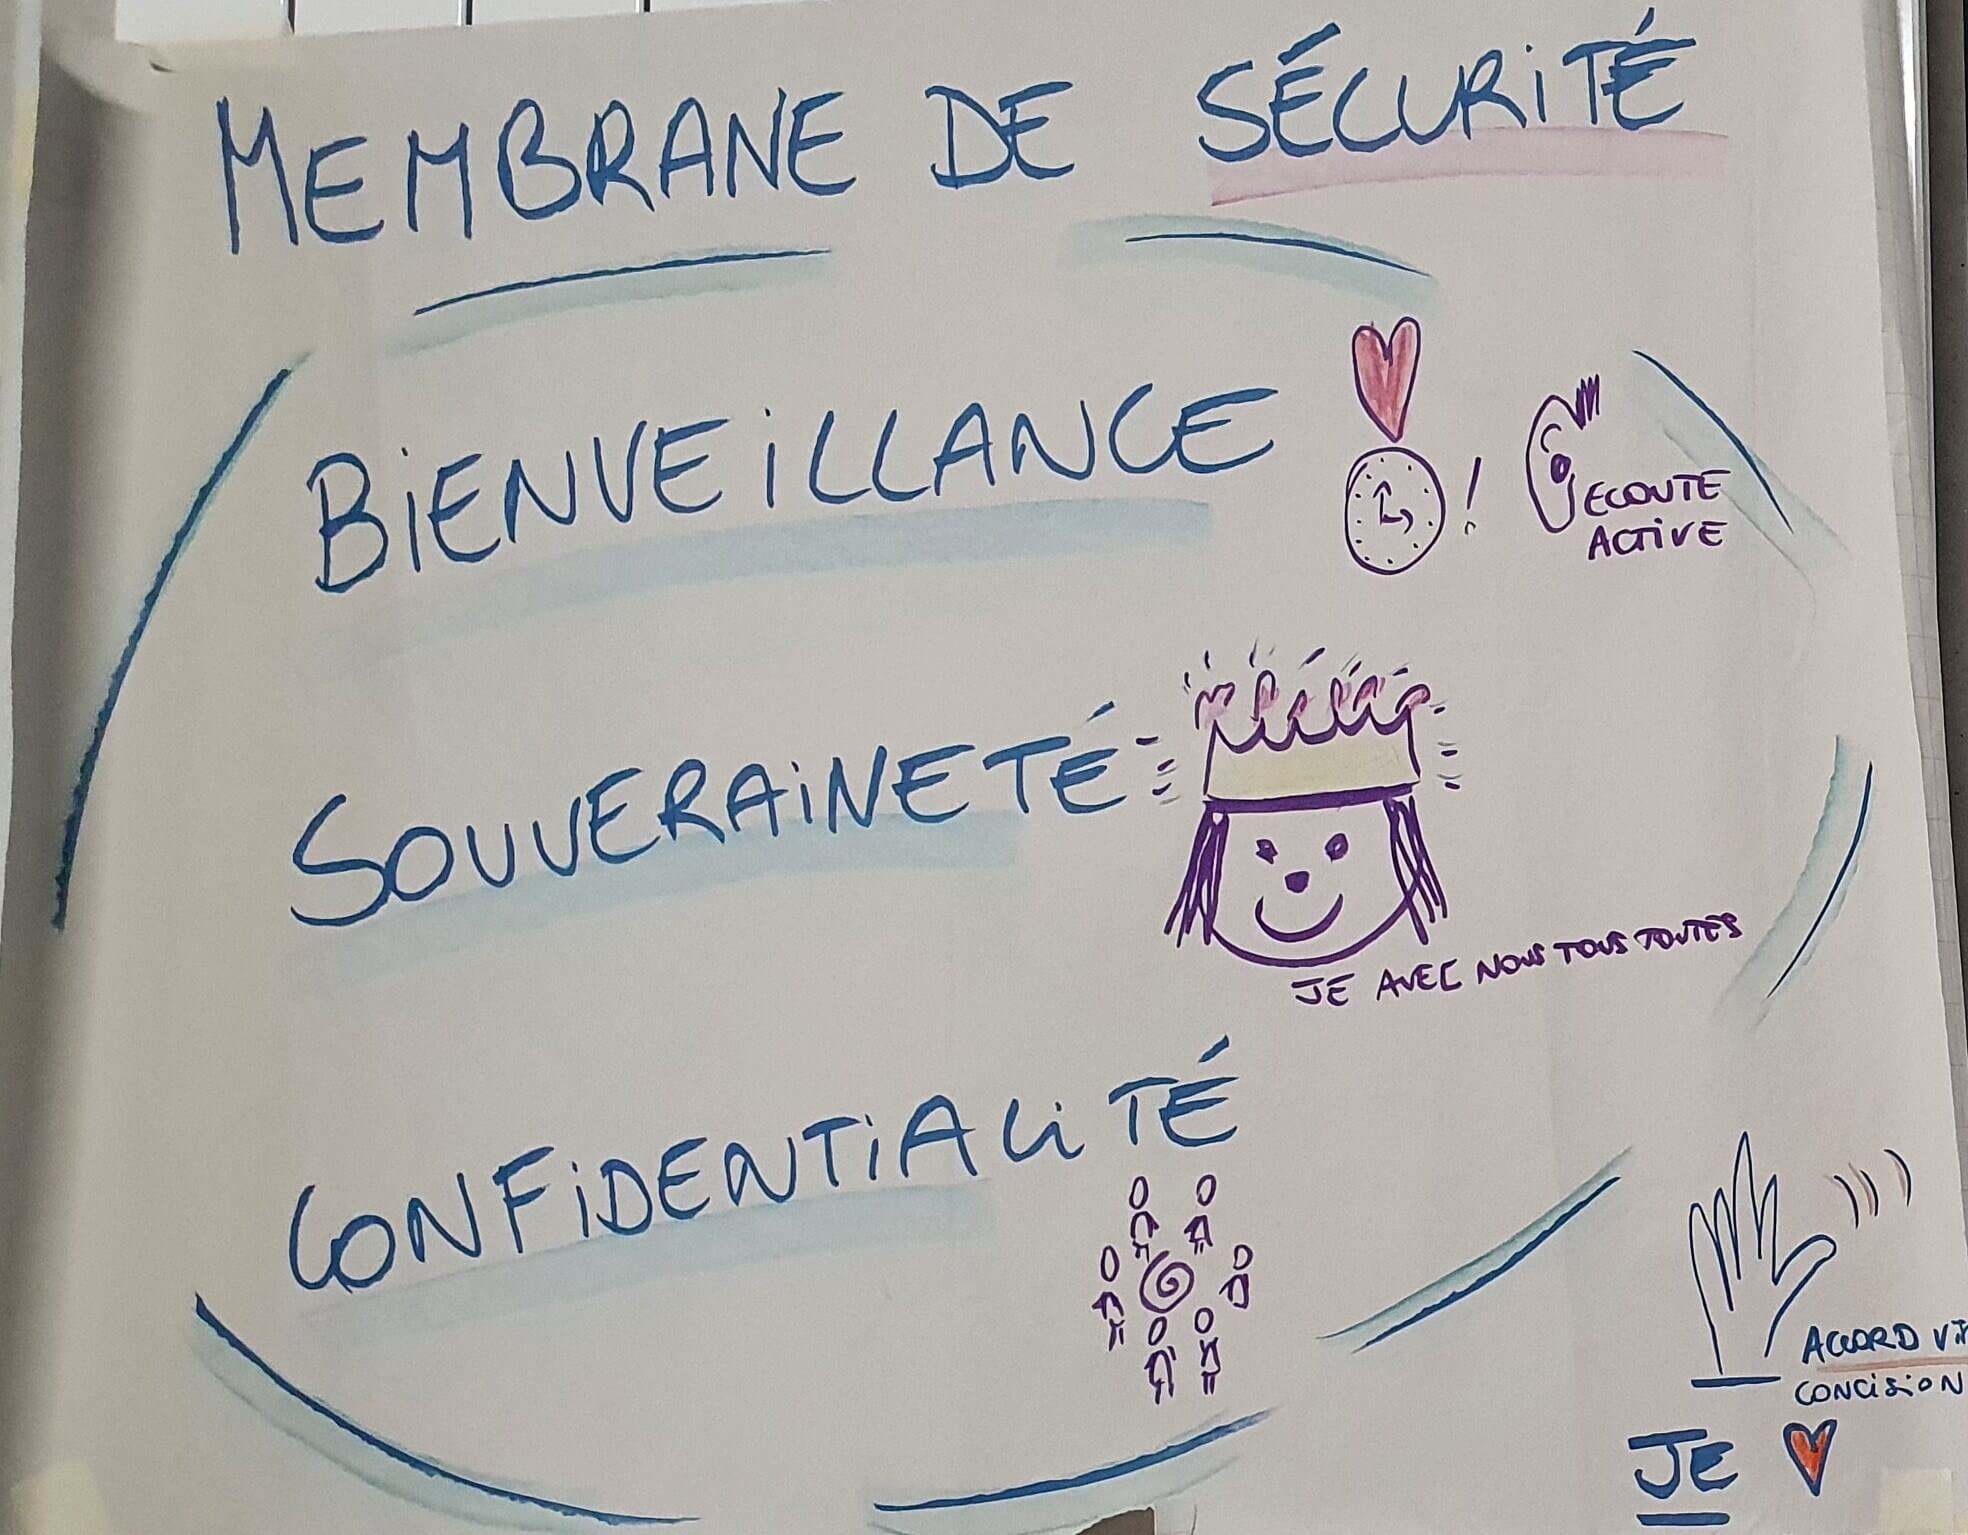 MEMBRANE DE SÉCURITÉ
BIENVEILLANCE
!
ECOUTE
ACTIVE
SOUVERAINETÉ
JE AVEC NOUS TOUS TOUTES
CONFIDENTIALITÉ
ACCORD
CONCISION
JE